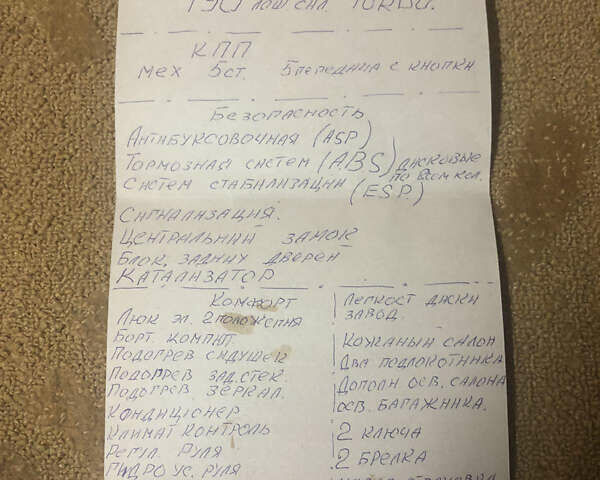 лош. сил. TURBO.
КПП
мех 5ст. 5 передача с кнопки
Безопасность
Антибуксовочная (ASP)
Тормозная систем (ABS) дисковые
по всем кол.
Систем стабилизации (ESP.)
Сигнализация.
Центральний замок
Блок. задниу дверей
Катализатор
Комфорт
Люк эл. 2 положения
Борт. компют.
Подогрев сидушек
Подогрев зад. стек.
Подогрев зеркал.
Кондиционер
Климат контроль
Регул. руля
Гидро ус. руля
Легкост диски
завод.
Кожаный салон
Два подлокотника
Дополн осв. салона
осв. багажника.
2 ключа
2 брелка